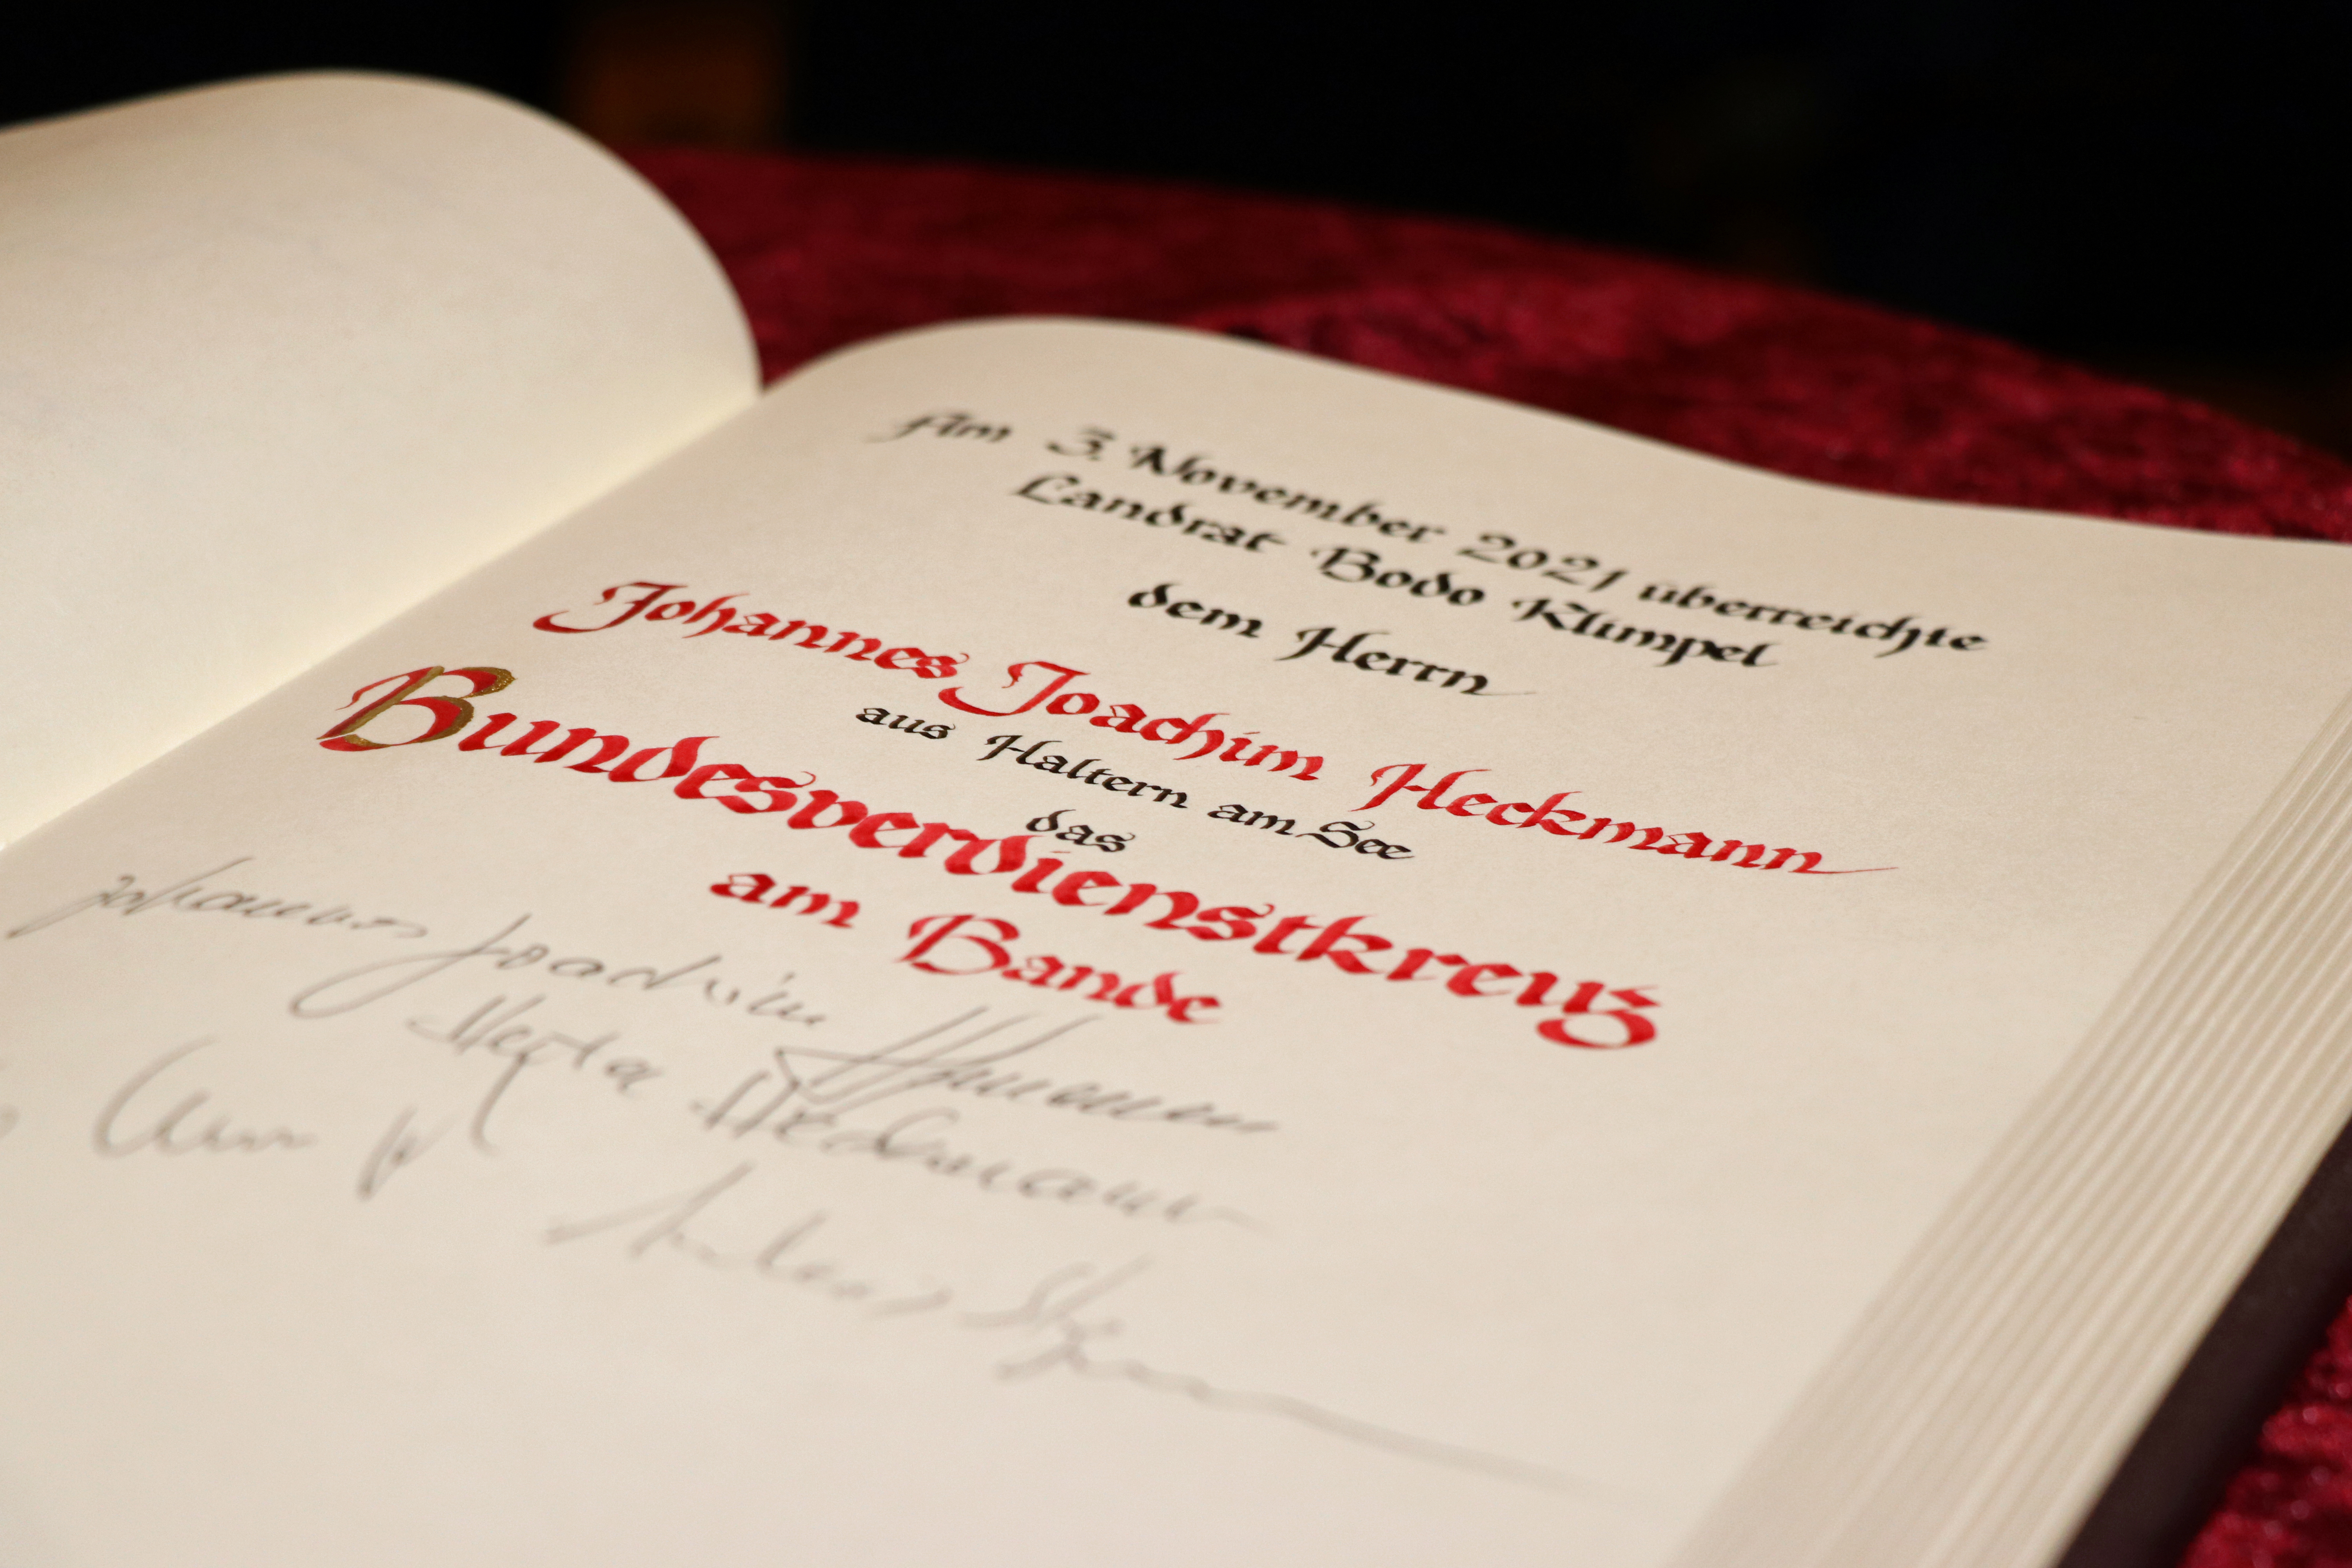 Am 3. November 2021 überreichte
Landrat Bodo Klimpel
dem Herrn
Johannes Joachim Heckmann
aus Haltern am See
das
Bundesverdienstkreuz
am Bande
Johannes Joachim